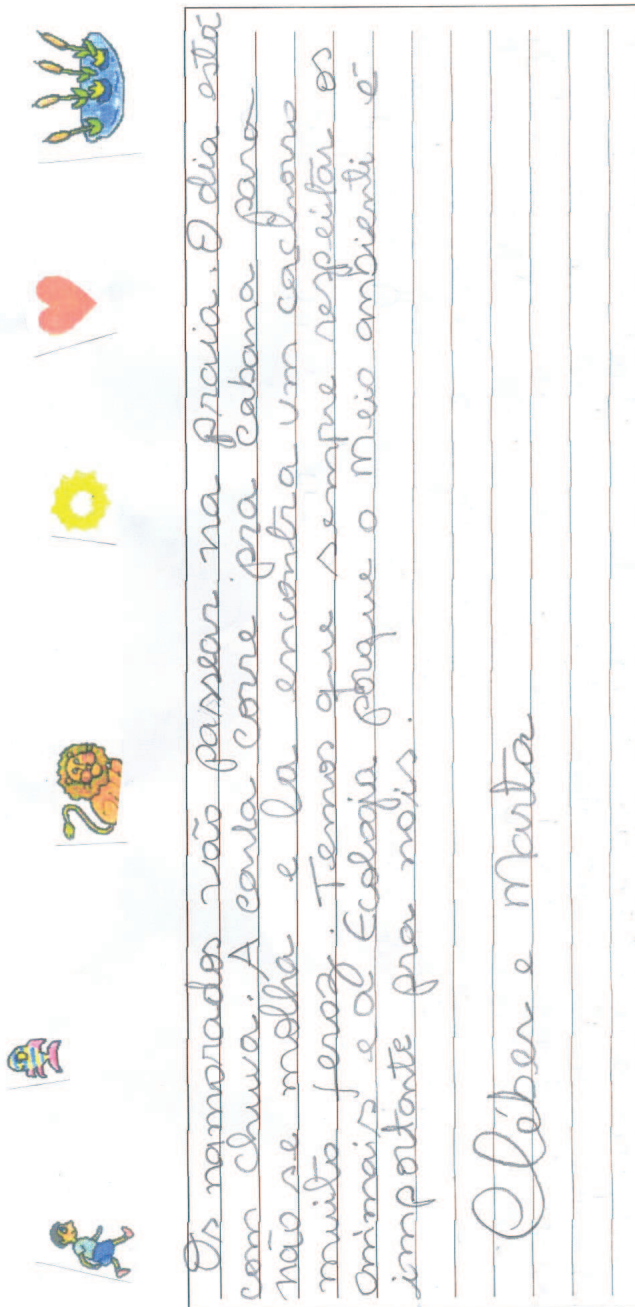 Os namorados vão passear na praia. O dia está
com chuva. A conla corre pra cabana para
não se molha e la encontra um cachorro
muito feroz. Temos que sempre respeitar os
animais e a Ecologia porque o meio ambienti é
importante pra nóis.
Cléber e Marta